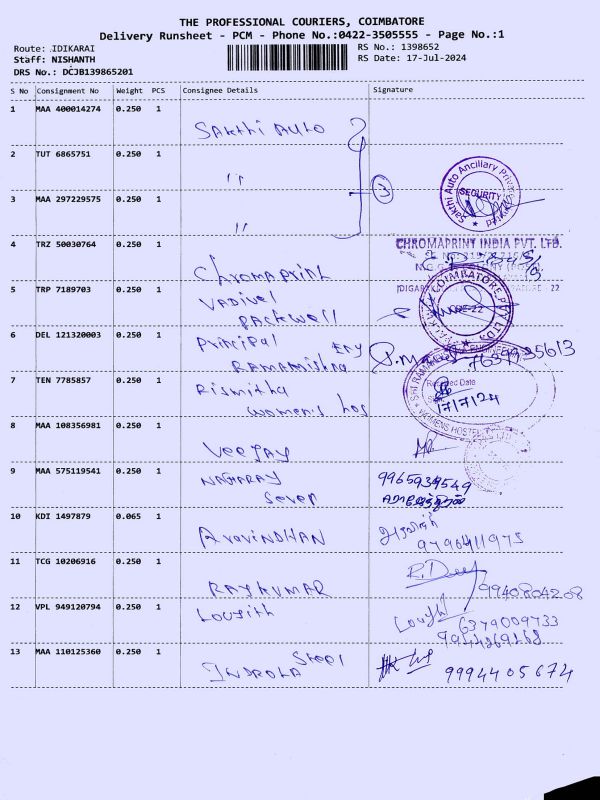 THE PROFESSIONAL COURIERS, COIMBATORE
Delivery Runsheet - PCM - Phone No.:0422-3505555 - Page No.:1
Route: IDIKARAI
Staff: NISHANTH
DRS No.: DCJB139865201
RS No.: 1398652
RS Date: 17-Jul-2024
S No Consignment No Weight PCS Consignee Details Signature
1 MAA 400014274 0.250 1 Sakthi Auto
2 TUT 6865751 0.250 1 "
3 MAA 297229575 0.250 1 "
3
Sakthi Auto Ancillary Private
SECURITY
4 TRZ 50030764 0.250 1 Chromaprint
CHROMAPRINT INDIA PVT. LTD.
5 TRP 7189703 0.250 1 Vadivel
Packwell
COIMBATORE
6 DEL 121320003 0.250 1 Principal Eng
Ramamishra
7639935613
7 TEN 7785857 0.250 1 Rismitha
Women's hos
Date
17/7/24
WOMENS HOSTEL
8 MAA 108356981 0.250 1 Veejay
9 MAA 575119541 0.250 1 Nagaraj
Seven
9965939549
10 KDI 1497879 0.065 1 Aravindhan
9790411975
11 TCG 10206916 0.250 1 Rajkumar
9940804208
12 VPL 949120794 0.250 1 Lougith
6379009733
13 MAA 110125360 0.250 1 Steel
Indrola
9994405674